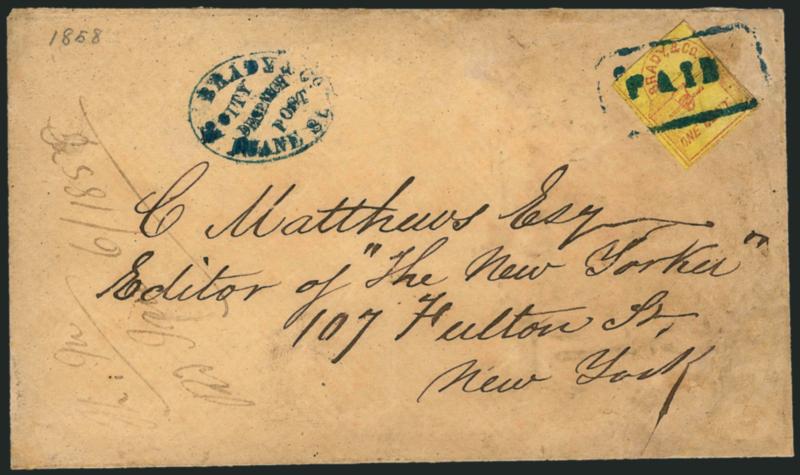 1858
BRADY & Co
CITY
DESPATCH
POST
DUANE St.
BRADY & CO.
PAID
ONE CENT
C Matthews Esq
Editor of "The New Yorker"
107 Fulton St,
New York